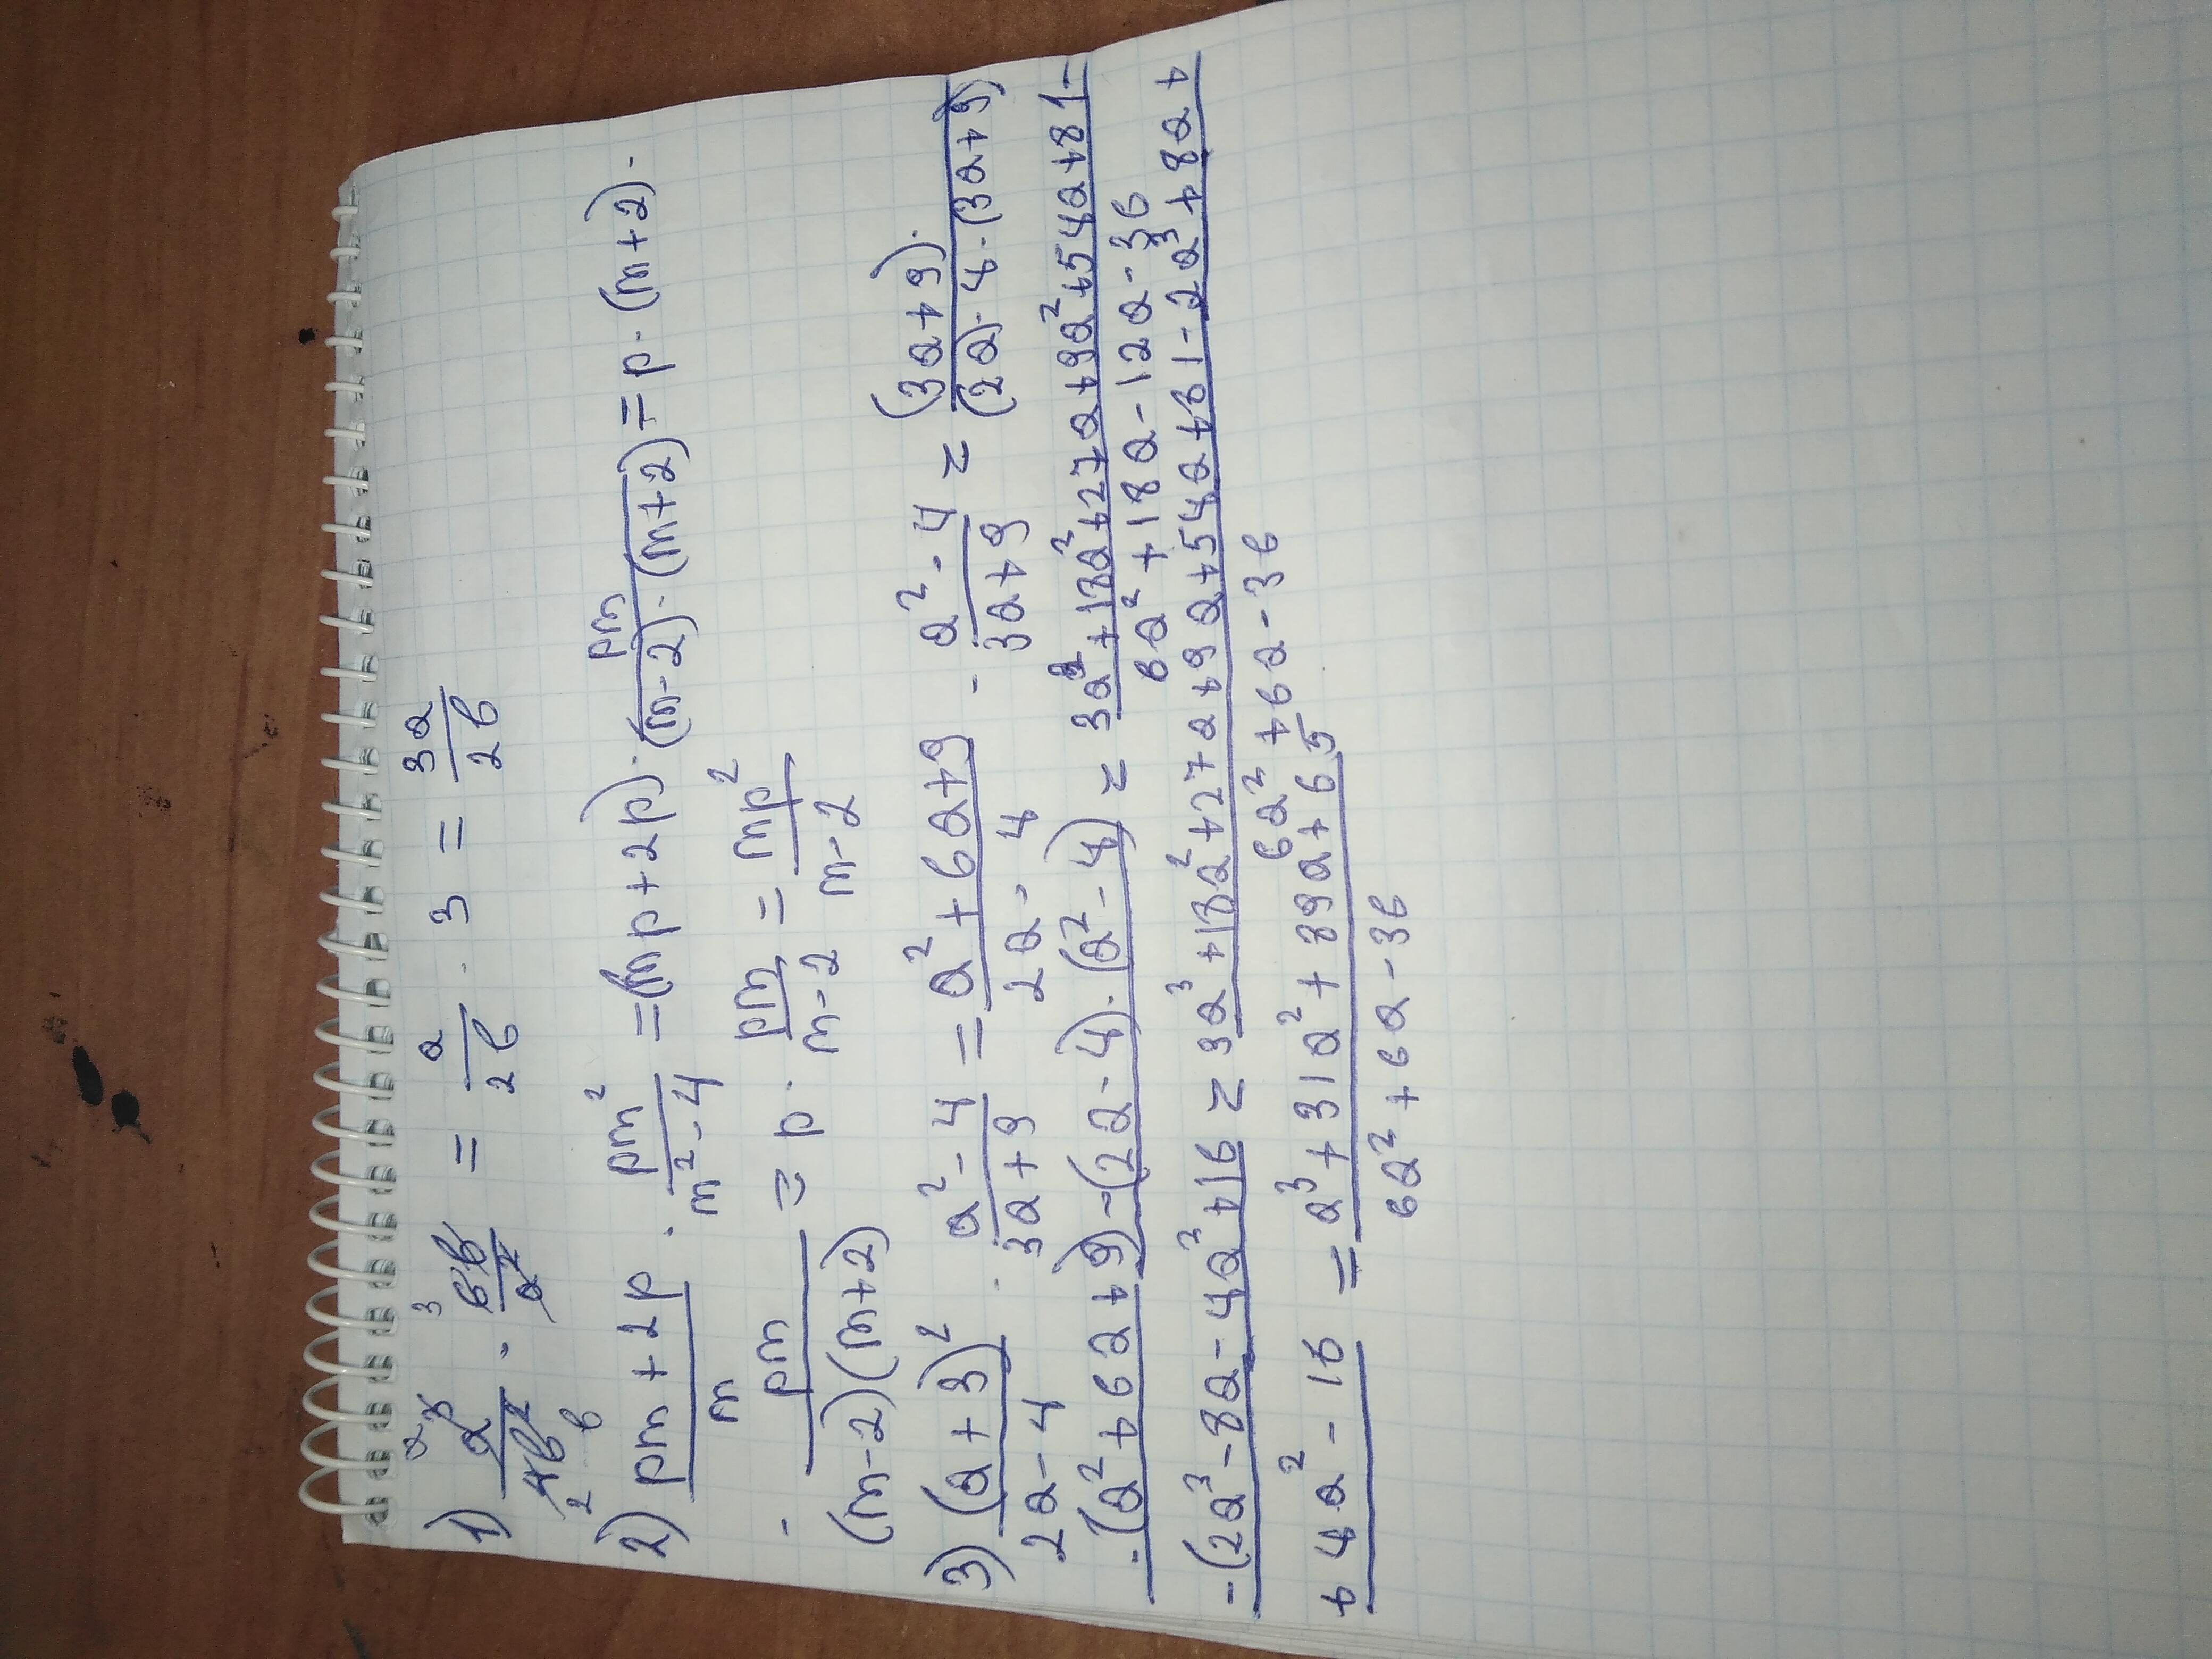 1) a³/4b² · 6b/a² = a/2b · 3 = 3a/2b
2) pm + 2p/m · pm²/m² - 4 = (mp + 2p) · pm/(m-2) · (m+2) = p · (m+2) ·
· pm/(m-2)(m+2) = p · pm/m-2 = mp²/m-2
3) (a+3)²/2a-4 · a²-4/3a+9 = a²+6a+9/2a-4 · a²-4/3a+9 = (3a+9) ·/(2a) · 4 · (3a+9)
· (a²+6a+9) - (2a-4) · (a²-4) = 3a³+18a²+27a+9a²+54a+81-/6a²+18a-12a-36
-(2a³-8a-4a²+16 = 3a³+18a²+27a+9a+54a+81-2a³+8a+/6a²+6a-36
+4a²-16 = a³+31a²+89a+65/6a²+6a-36